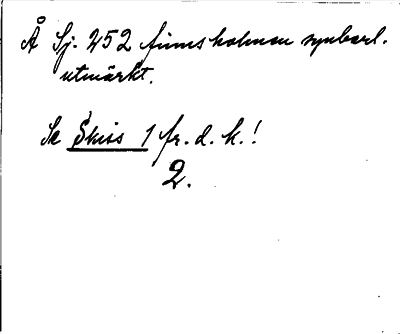 Å Sj. 252 finns holmen synbarl.
utmärkt.
Se Skiss 1 fr. d. k.!
2.